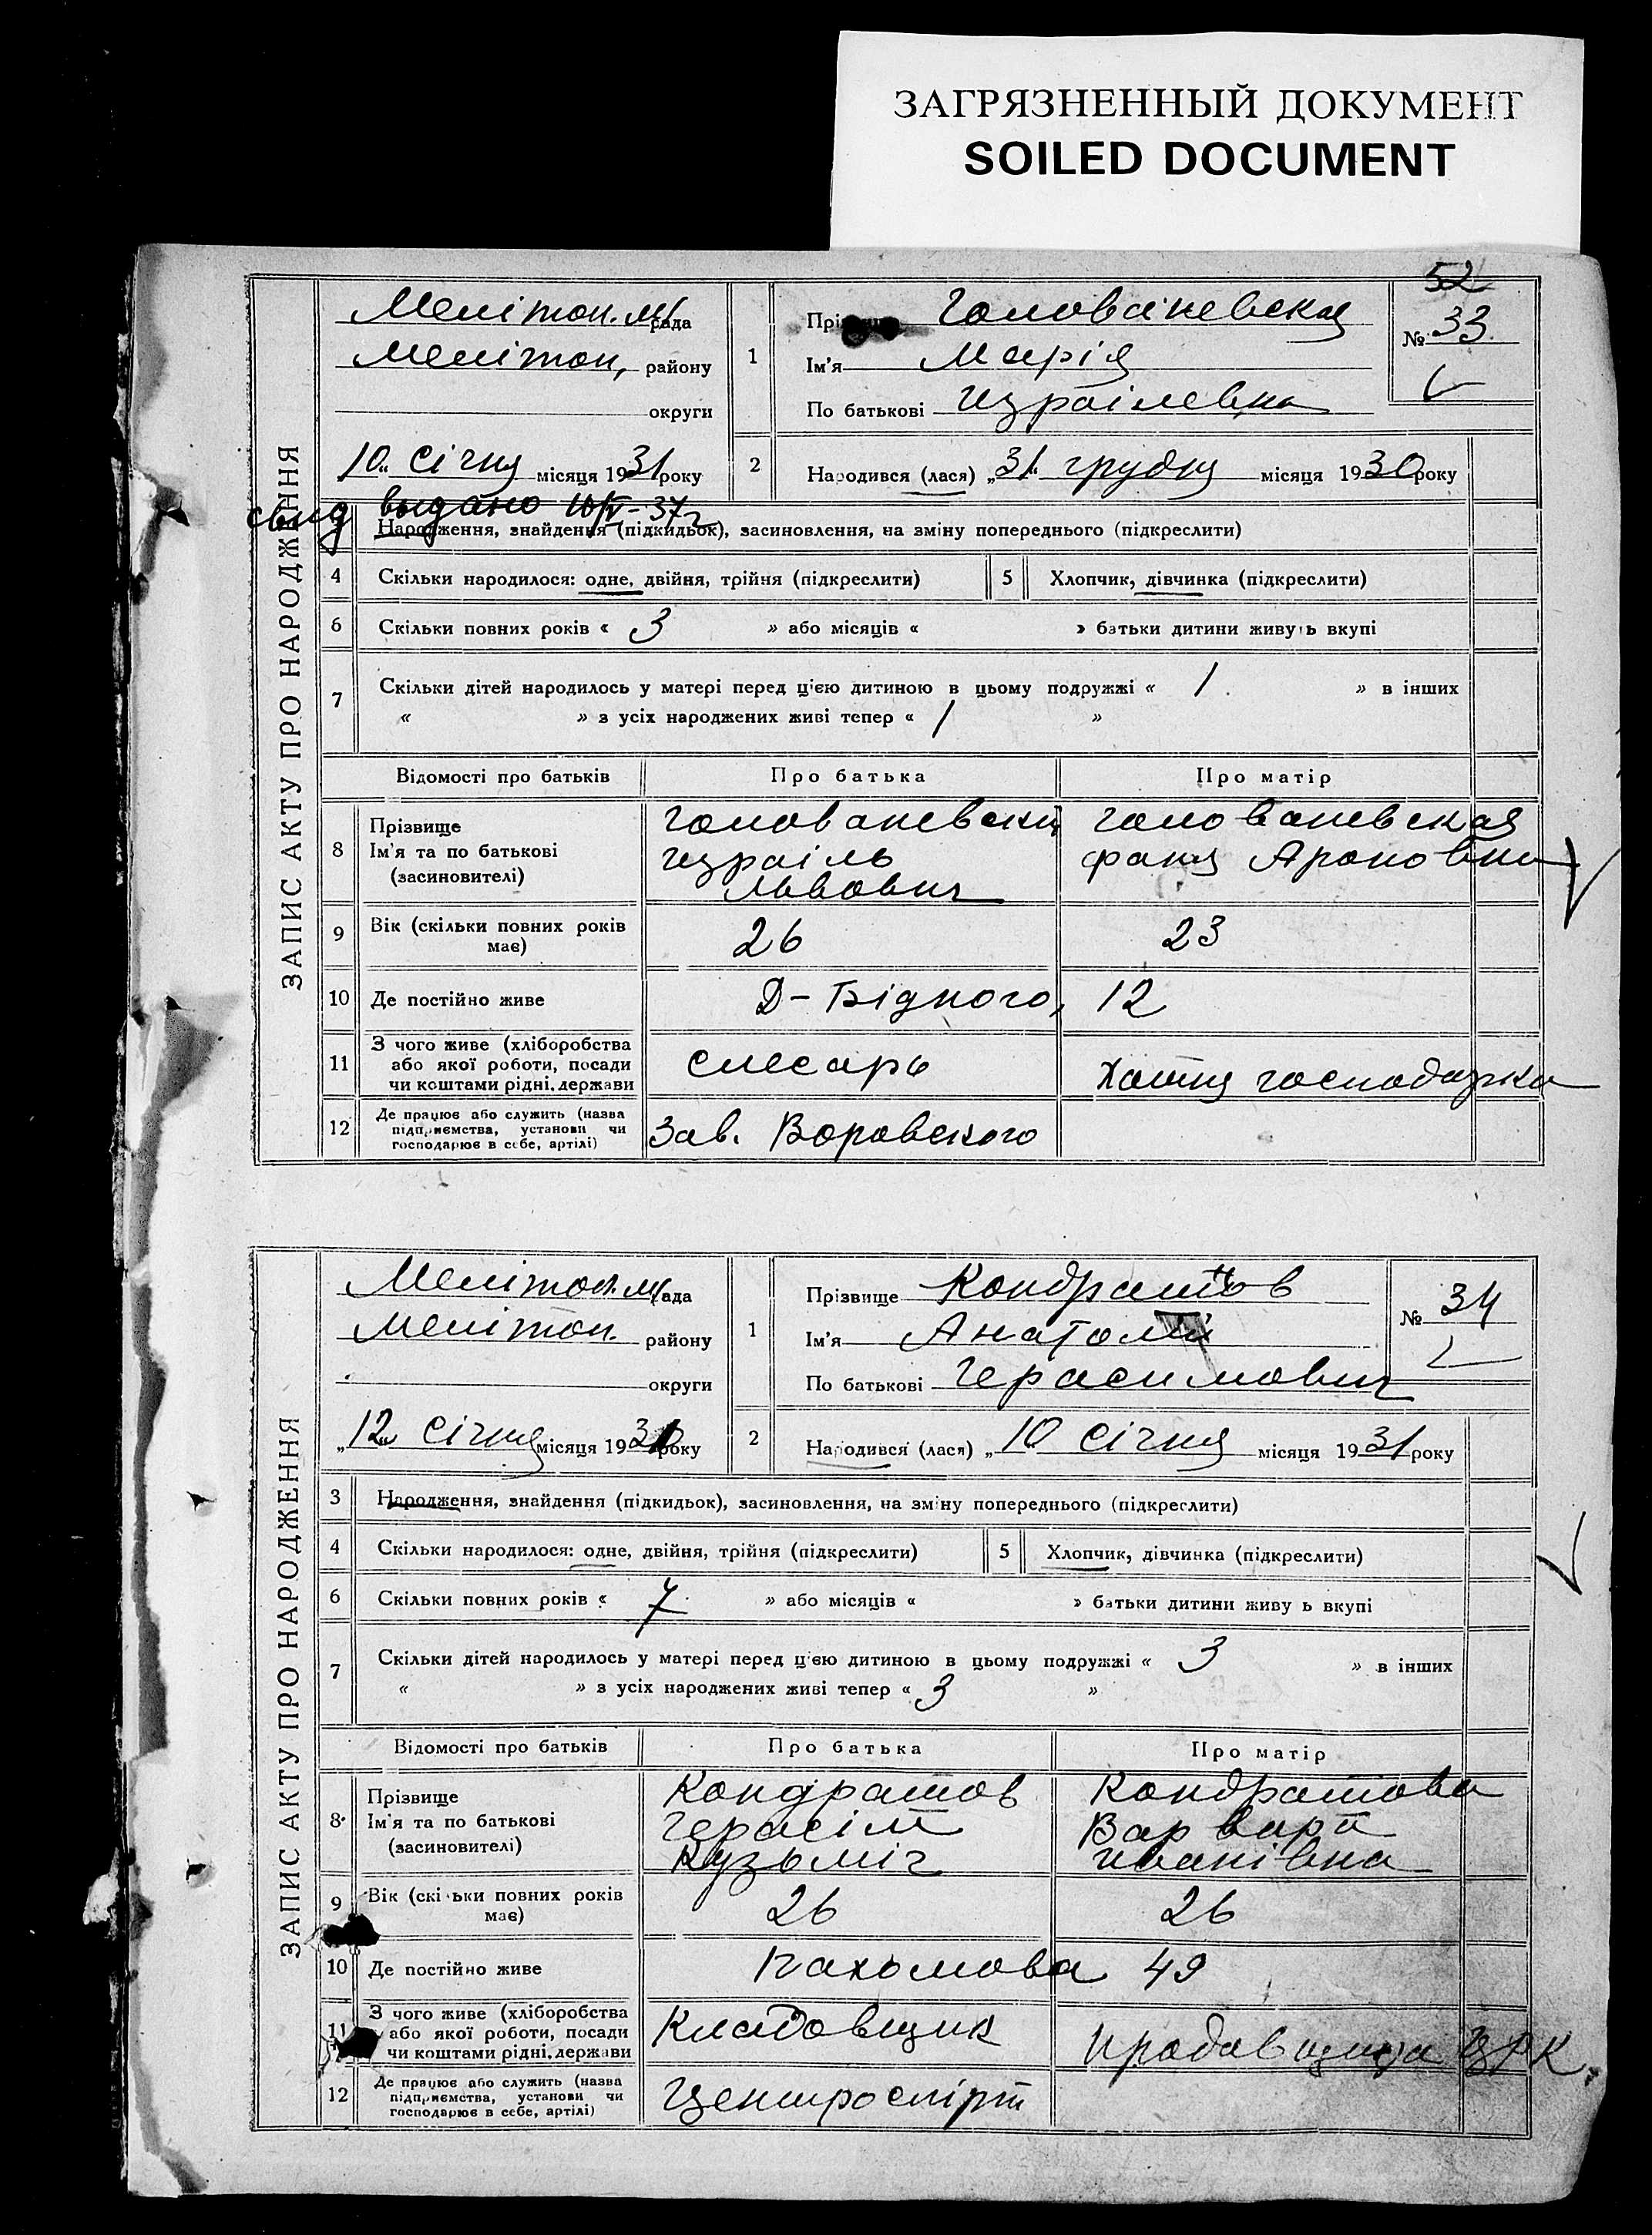 ЗАГРЯЗНЕННЫЙ ДОКУМЕНТ
SOILED DOCUMENT
52
ЗАПИС АКТУ ПРО НАРОДЖЕННЯ
Мелітоп. М/рада
Мелітоп, району
округи
10 " січня місяця 1931 року
1
Прізвище Голованевская
Ім'я Марія
По батькові Израілевна
№ 33.
2
Народився (лася) „31" грудня місяця 1930 року
свид выдано 10/IV-37г
Народження, знайдення (підкидьок), засиновлення, на зміну попереднього (підкреслити)
4 Скільки народилося: одне, двійня, трійня (підкреслити) 5 Хлопчик, дівчинка (підкреслити)
6 Скільки повних років « 3 » або місяців « » батьки дитини живуть вкупі
7 Скільки дітей народилось у матері перед цією дитиною в цьому подружжі « 1 » в інших
« » з усіх народжених живі тепер « 1 »
Відомості про батьків Про батька Про матір
8 Прізвище Ім'я та по батькові (засиновителі)
Голованевский Израіль Львович
Голованевская Фаня Ароновна
9 Вік (скільки повних років має) 26 23
10 Де постійно живе Д-Бідного, 12
11 З чого живе (хліборобства або якої роботи, посади чи коштами рідні, держави
слесарь
Хатня господарка
12 Де працює або служить (назва підприємства, установи чи господарює в себе, артілі)
Зав. Воровского
ЗАПИС АКТУ ПРО НАРОДЖЕННЯ
Мелітоп. М/рада
Мелітоп. району
округи
„12" січня місяця 1931 року
1
Прізвище Кондратов
Ім'я Анатолій
По батькові Герасимович
№ 34
2
Народився (лася) „10 січня місяця 1931 року
3 Народження, знайдення (підкидьок), засиновлення, на зміну попереднього (підкреслити)
4 Скільки народилося: одне, двійня, трійня (підкреслити) 5 Хлопчик, дівчинка (підкреслити)
6 Скільки повних років « 7 » або місяців « » батьки дитини живу ь вкупі
7 Скільки дітей народилось у матері перед цією дитиною в цьому подружжі « 3 » в інших
« » з усіх народжених живі тепер « 3 »
Відомості про батьків Про батька Про матір
8 Прізвище Ім'я та по батькові (засиновителі)
Кондратов Герасім Кузьміч
Кондратова Варвара Иванівна
9 Вік (скільки повних років має) 26 26
10 Де постійно живе Пахомова 49
11 З чого живе (хліборобства або якої роботи, посади чи коштами рідні, держави
Кладовщик
продавщица ЦРК.
12 Де працює або служить (назва підприємства, установи чи господарює в себе, артілі)
Центроспірт